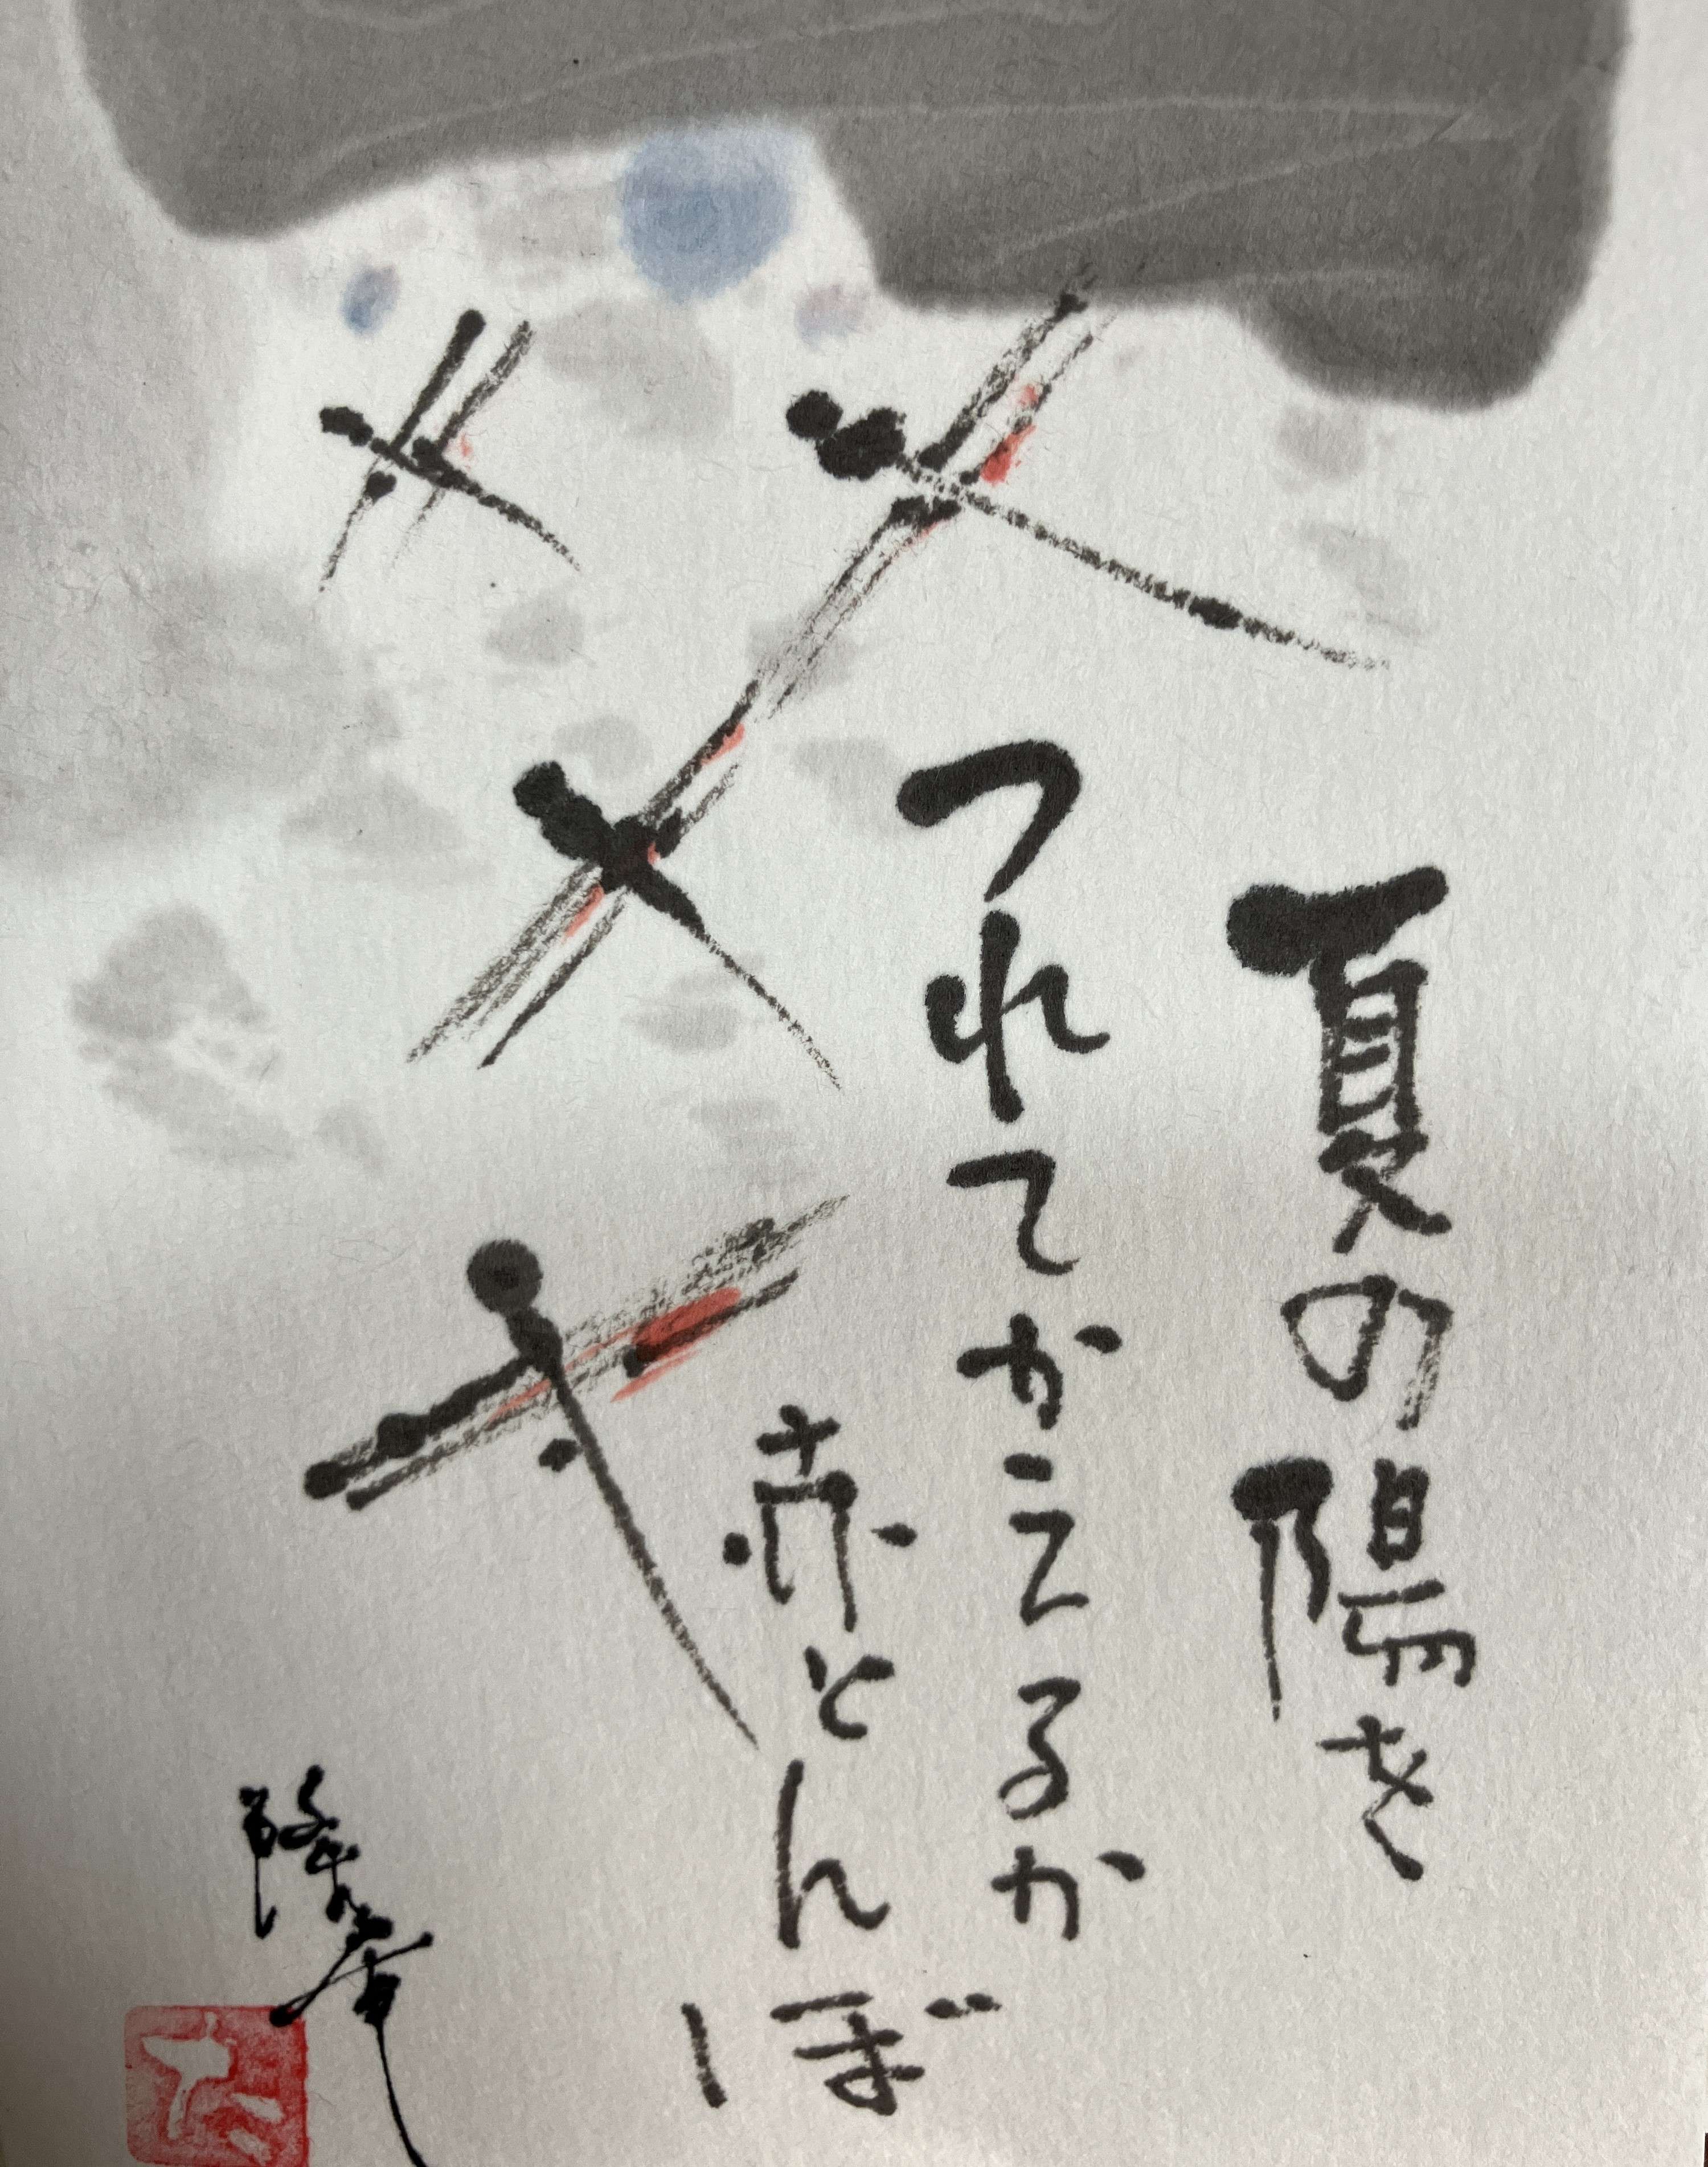 夏の陽を
つれてかえるか
赤とんぼ